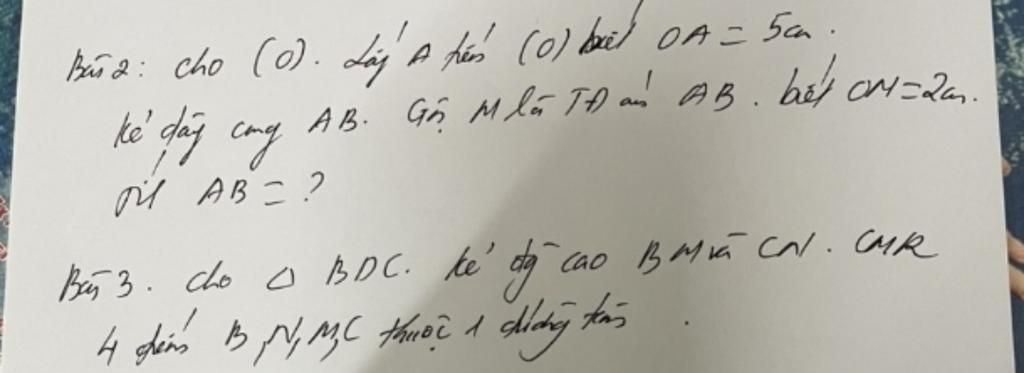 Bài 2: cho (O). Lấy A trên (O) biết OA = 5cm.
kẻ dây cung AB. Gọi M là TĐ của AB. biết OM = 2cm.
Tính AB = ?
Bài 3. cho △ BDC. kẻ đg cao BM và CN. CMR
4 điểm B, N, M, C thuộc 1 đường tròn.